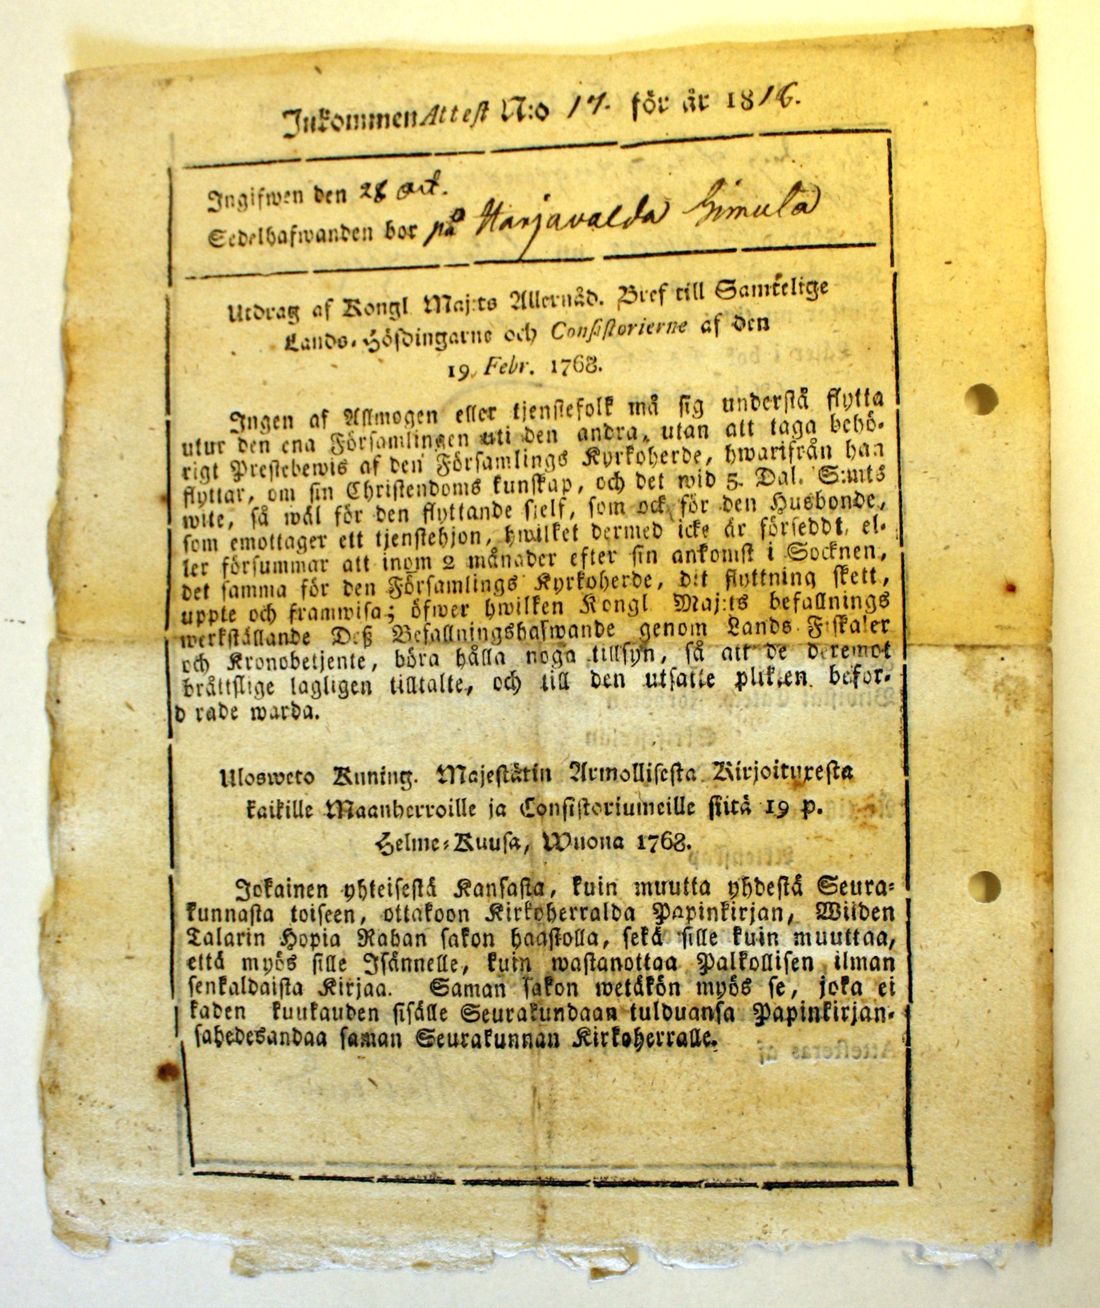 Inkommen Attest N:o 17. för år 1816.
Ingifwen den 28 Oct.
Sedelhafwanden bor på Harjavalda Simula
Utdrag af Kongl Maj:ts Allernåd. Bref till Samtelige
Lands-Höfdingarne och Consistorierne af den
19 Febr. 1768.
Ingen af Allmogen eller tjenstefolk må sig understå flytta
utur den ena Församlingen uti den andra, utan att taga behö-
rigt Prestebewis af den Församlings Kyrkoherde, hwarifrån han
flyttar, om sin Christendoms kunskap, och det wid 5. Dal. S:mts
wite, så wäl för den flyttande sjelf, som ock för den Husbonde,
som emottager ett tjenstehjon, hwilket dermed icke är förseddt, el-
ler försummar att inom 2 månader efter sin ankomst i Socknen,
det samma för den Församlings Kyrkoherde, dit flyttning skett,
uppte och framwisa; öfwer hwilken Kongl Maj:ts befallnings
werkställande Deß Befallningshafwande genom Lands Fiskaler
och Kronobetjente, böra hålla noga tillsyn, så att de deremot
bråttslige lagligen tilltalte, och till den utsatte plikten befor-
d rade warda.
Ulosweto Kuning. Majestätin Armollisesta Kirjoituxesta
kaikille Maanherroille ja Consistoriumeille siitä 19 p.
Helme-Kuusa, Wuona 1768.
Jokainen yhteisestä Kansasta, kuin muutta yhdestä Seura-
kunnasta toiseen, ottakoon Kirkoherralda Papinkirjan, Wiiden
Talarin Hopia Rahan sakon haastolla, sekä sille kuin muuttaa,
että myös sille Isännelle, kuin wastanottaa Palkollisen ilman
senkaldaista Kirjaa. Saman sakon wetäkön myös se, joka ei
kaden kuukauden sisälle Seurakundaan tulduansa Papinkirjan-
sahedesandaa saman Seurakunnan Kirkoherralle.